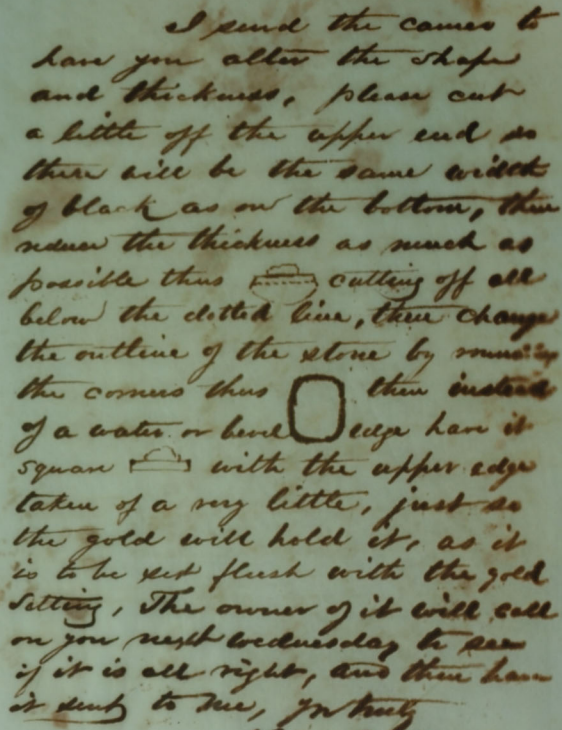 I send the cameo to
have you alter the shape
and thickness, please cut
a little off the upper end so
there will be the same width
of black as on the bottom, then
reduce the thickness as much as
possible thus cutting off all
below the dotted line, then change
the outline of the stone by rounding
the corners thus then instead
of a water or bevel edge have it
square with the upper edge
taken of a very little, just so
the gold will hold it, as it
is to be set flush with the gold
setting, The owner of it will call
on you next wednesday to see
if it is all right, and then have
it sent to me, yr truly